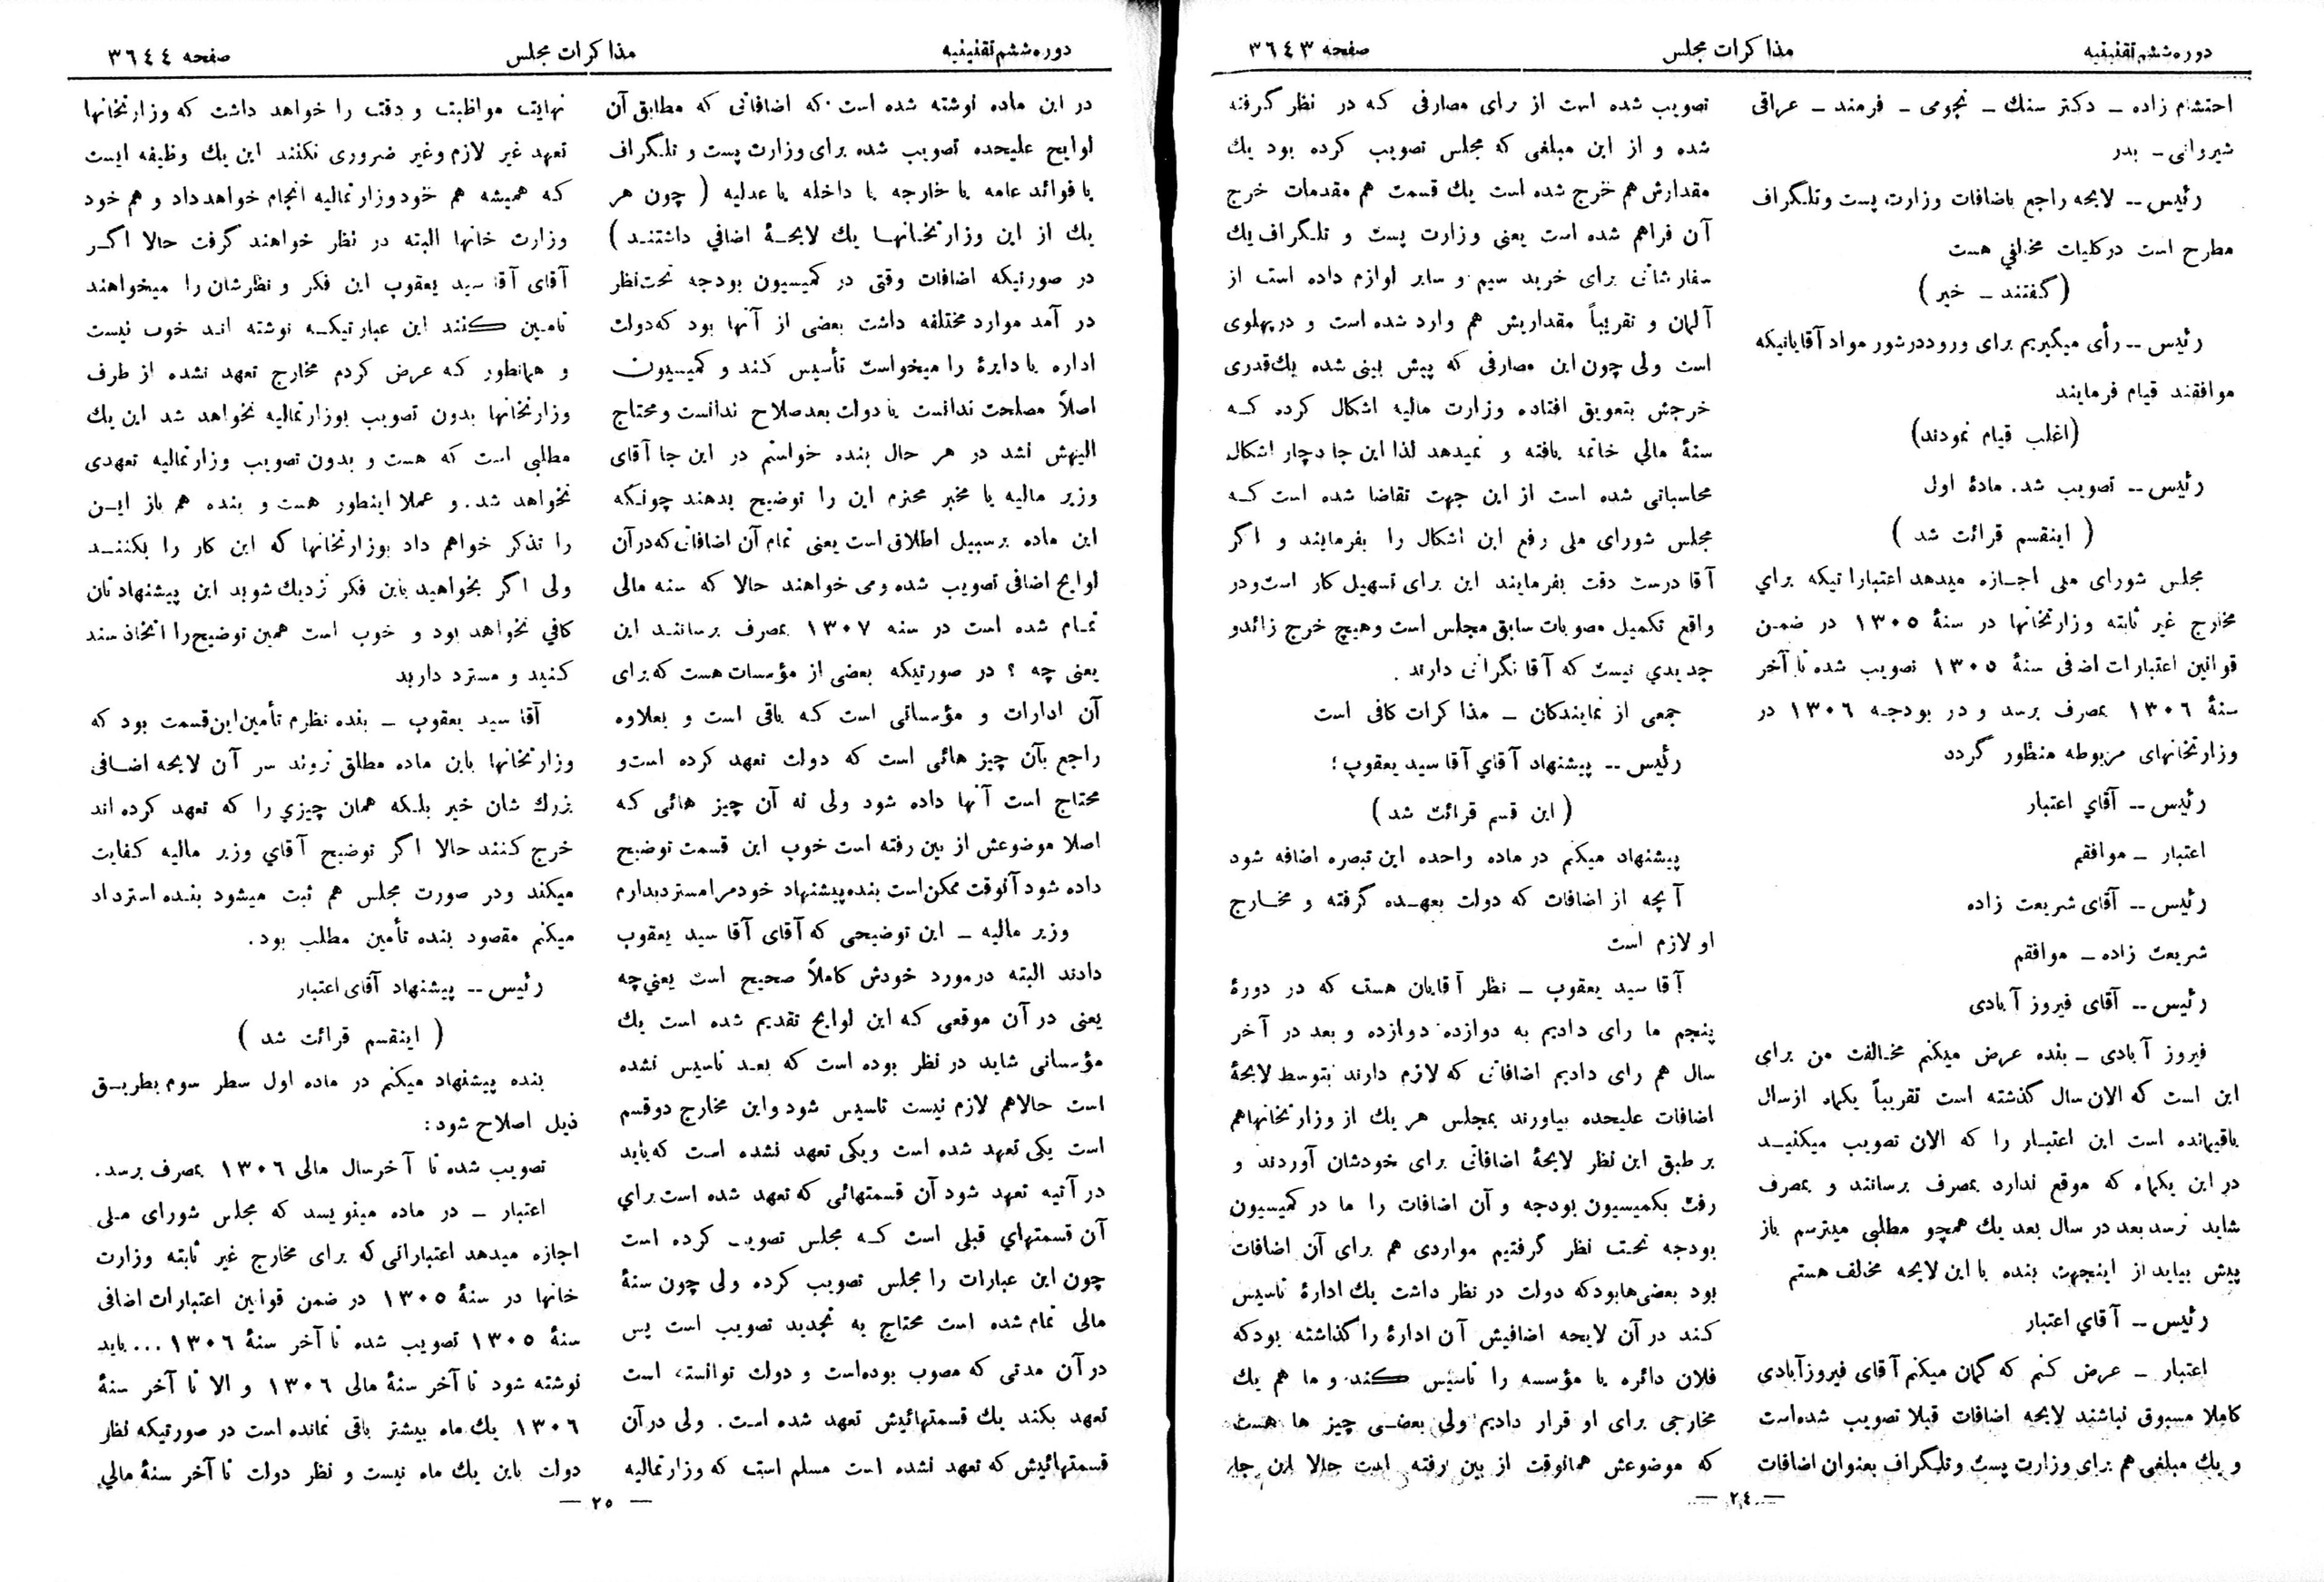 دوره ششم تقنینیه
مذاکرات مجلس
صفحه ٣٦٤٣
احتشام زاده ـ دکتر سنك ـ نجومی ـ فرمند ـ عراقی
شیروانی ـ بدر
رئیس -- لایحه راجع باضافات وزارت پست و تلگراف
مطرح است در کلیات مخالفی هست
(گفتند ـ خیر)
رئیس -- رأی میگیریم برای ورود در شور مواد آقایانیکه
موافقند قیام فرمایند
(اغلب قیام نمودند)
رئیس -- تصویب شد. مادهٔ اول
( اینقسم قرائت شد )
مجلس شورای ملی اجازه میدهد اعتباراتیکه برای
مخارج غیر ثابته وزارتخانها در سنهٔ ١٣٠٥ در ضمن
قوانین اعتبارات اضافی سنهٔ ١٣٠٥ تصویب شده تا آخر
سنهٔ ١٣٠٦ بمصرف برسد و در بودجه ١٣٠٦ در
وزارتخانهای مربوطه منظور گردد
رئیس -- آقای اعتبار
اعتبار ـ موافقم
رئیس -- آقای شریعت زاده
شریعت زاده ـ موافقم
رئیس -- آقای فیروز آبادی
فیروز آبادی ـ بنده عرض میکنم مخالفت من برای
این است که الان سال گذشته است تقریباً یکماه از سال
باقیمانده است این اعتبار را که الان تصویب میکنید
در این یکماه که موقع ندارد بمصرف برسانند و بمصرف
شاید نرسد بعد در سال بعد یك همچو مطلبی میترسم باز
پیش بیاید از اینجهت بنده با این لایحه مخالف هستم
رئیس -- آقای اعتبار
اعتبار ـ عرض کنم که گمان میکنم آقای فیروزآبادی
کاملا مسبوق نباشند لایحه اضافات قبلا تصویب شده است
و یك مبلغی هم برای وزارت پست و تلیگراف بعنوان اضافات
تصویب شده است از برای مصارفی که در نظر گرفته
شده و از این مبلغی که مجلس تصویب کرده بود یك
مقدارش هم خرج شده است یك قسمت هم مقدمات خرج
آن فراهم شده است یعنی وزارت پست و تلگراف یك
سفارشاتی برای خرید سیم و سایر لوازم داده است از
آلمان و تقریباً مقداریش هم وارد شده است و در پهلوی
است ولی چون این مصارفی که پیش بینی شده یك قدری
خرجش بتعویق افتاده وزارت مالیه اشکال کرده که
سنهٔ مالی خاتمه یافته و نمیدهد لذا این جا دچار اشکال
محاسباتی شده است از این جهت تقاضا شده است که
مجلس شورای ملی رفع این اشکال را بفرمایند و اگر
آقا درست دقت بفرمایند این برای تسهیل کار است و در
واقع تکمیل مصوبات سابق مجلس است و هیچ خرج زائد و
جدیدی نیست که آقا نگرانی دارند .
جمعی از نمایندگان ـ مذاکرات کافی است
رئیس -- پیشنهاد آقای آقا سید یعقوب :
( این قسم قرائت شد )
پیشنهاد میکنم در ماده واحده این تبصره اضافه شود
آنچه از اضافات که دولت بعهده گرفته و مخارج
او لازم است
آقا سید یعقوب ـ نظر آقایان هست که در دورهٔ
پنجم ما رای دادیم به دوازده دوازده و بعد در آخر
سال هم رای دادیم اضافاتی که لازم دارند بتوسط لایحهٔ
اضافات علیحده بیاورند بمجلس هر یك از وزارتخانها هم
بر طبق این نظر لایحهٔ اضافاتی برای خودشان آوردند و
رفت بکمیسیون بودجه و آن اضافات را ما در کمیسیون
بودجه تحت نظر گرفتیم مواردی هم برای آن اضافات
بود بعضی ها بود که دولت در نظر داشت یك ادارهٔ تاسیس
کند در آن لایحه اضافیش آن ادارهٔ را گذاشته بود که
فلان دائره یا مؤسسه را تاسیس کند و ما هم یك
مخارجی برای او قرار دادیم ولی بعضی چیز ها هست
که موضوعش همانوقت از بین رفته است حالا این جا
— ٢٤ —
دوره ششم تقنینیه
مذاکرات مجلس
صفحه ٣٦٤٤
در این ماده نوشته شده است که اضافاتی که مطابق آن
لوایح علیحده تصویب شده برای وزارت پست و تلگراف
یا فوائد عامه یا خارجه یا داخله یا عدلیه ( چون هر
یك از این وزارتخانها یك لایحهٔ اضافی داشتند )
در صورتیکه اضافات وقتی در کمیسیون بودجه تحت نظر
در آمد موارد مختلفه داشت بعضی از آنها بود که دولت
اداره یا دایرهٔ را میخواست تأسیس کند و کمیسیون
اصلاً مصلحت ندانست یا دولت بعد صلاح ندانست و محتاج
الیهش نشد در هر حال بنده خواستم در این جا آقای
وزیر مالیه یا مخبر محترم این را توضیح بدهند چونکه
این ماده بر سبیل اطلاق است یعنی تمام آن اضافاتی که در آن
لوایح اضافی تصویب شده و می خواهند حالا که سنه مالی
تمام شده است در سنه ١٣٠٧ بمصرف برسانند این
یعنی چه ؟ در صورتیکه بعضی از مؤسسات هست که برای
آن ادارات و مؤسساتی است که باقی است و بعلاوه
راجع بآن چیز هائی است که دولت تعهد کرده است و
محتاج است آنها داده شود ولی نه آن چیز هائی که
اصلا موضوعش از بین رفته است خوب این قسمت توضیح
داده شود آنوقت ممکن است بنده پیشنهاد خودم را مسترد بدارم
وزیر مالیه ـ این توضیحی که آقای آقا سید یعقوب
دادند البته در مورد خودش کاملاً صحیح است یعنی چه
یعنی در آن موقعی که این لوایح تقدیم شده است یك
مؤسساتی شاید در نظر بوده است که بعد تاسیس نشده
است حالاهم لازم نیست تاسیس شود و این مخارج دو قسم
است یکی تعهد شده است و یکی تعهد نشده است که باید
در آتیه تعهد شود آن قسمتهائی که تعهد شده است برای
آن قسمتهای قبلی است که مجلس تصویب کرده است
چون این عبارات را مجلس تصویب کرده ولی چون سنهٔ
مالی تمام شده است محتاج به تجدید تصویب است پس
در آن مدتی که مصوب بوده است و دولت توانسته است
تعهد بکند یك قسمتهائیش تعهد شده است . ولی در آن
قسمتهائیش که تعهد نشده است مسلم است که وزارت مالیه
نهایت مواظبت و دقت را خواهد داشت که وزارتخانها
تعهد غیر لازم و غیر ضروری نکنند این یك وظیفه ایست
که همیشه هم خود وزارت مالیه انجام خواهد داد و هم خود
وزارت خانها البته در نظر خواهند گرفت حالا اگر
آقای آقا سید یعقوب این فکر و نظرشان را میخواهند
تامین کنند این عبارتیکه نوشته اند خوب نیست
و همانطور که عرض کردم مخارج تعهد نشده از طرف
وزارتخانها بدون تصویب بوزارتمالیه نخواهد شد این یك
مطلبی است که هست و بدون تصویب وزارتمالیه تعهدی
نخواهد شد . و عملا اینطور هست و بنده هم باز این
را تذکر خواهم داد بوزارتخانها که این کار را بکنند
ولی اگر بخواهید باین فکر نزدیك شوید این پیشنهادتان
کافی نخواهد بود و خوب است همین توضیح را اتخاذ سند
کنید و مسترد دارید
آقا سید یعقوب ـ بنده نظرم تأمین این قسمت بود که
وزارتخانها باین ماده مطلق نروند سر آن لایحه اضافی
بزرك شان خیر بلکه همان چیزی را که تعهد کرده اند
خرج کنند حالا اگر توضیح آقای وزیر مالیه کفایت
میکند و در صورت مجلس هم ثبت میشود بنده استرداد
میکنم مقصود بنده تأمین مطلب بود .
رئیس -- پیشنهاد آقای اعتبار
( اینقسم قرائت شد )
بنده پیشنهاد میکنم در ماده اول سطر سوم بطریق
ذیل اصلاح شود :
تصویب شده تا آخر سال مالی ١٣٠٦ بمصرف برسد .
اعتبار ـ در ماده مینویسد که مجلس شورای ملی
اجازه میدهد اعتباراتی که برای مخارج غیر ثابته وزارت
خانها در سنهٔ ١٣٠٥ در ضمن قوانین اعتبارات اضافی
سنهٔ ١٣٠٥ تصویب شده تا آخر سنهٔ ١٣٠٦ ... باید
نوشته شود تا آخر سنهٔ مالی ١٣٠٦ و الا تا آخر سنهٔ
١٣٠٦ یك ماه بیشتر باقی نمانده است در صورتیکه نظر
دولت باین یك ماه نیست و نظر دولت تا آخر سنهٔ مالی
— ٢٥ —